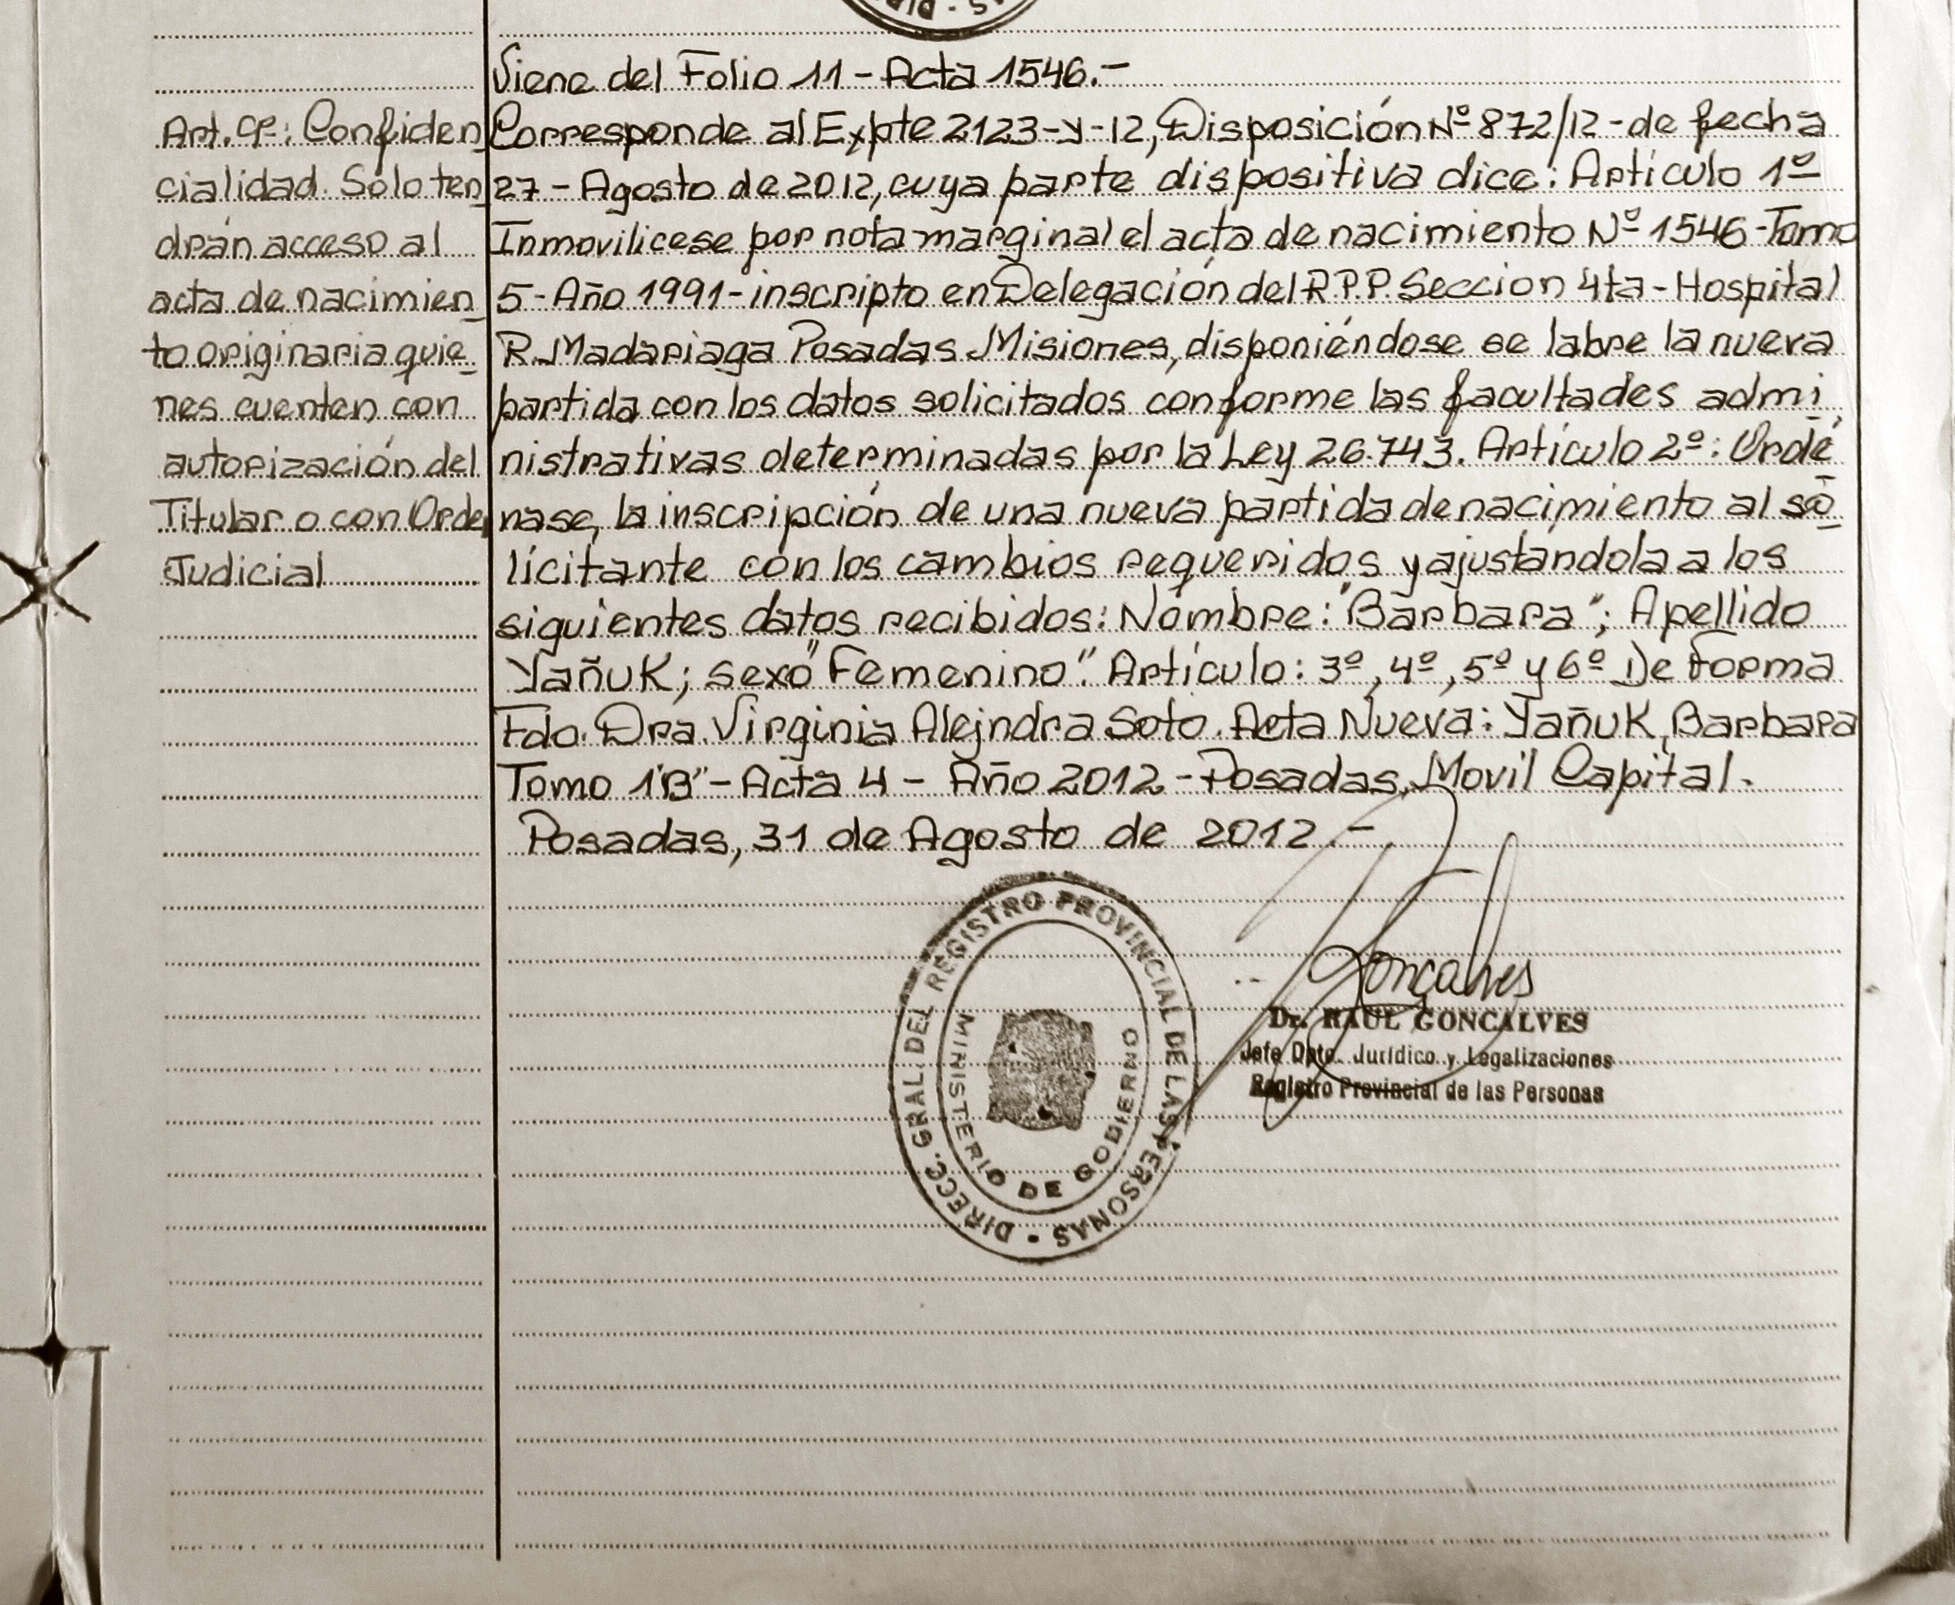 Viene del Folio 11 - Acta 1546.-
Art. 9º: Confiden
cialidad. Sólo ten
drán acceso al
acta de nacimien
to originaria quie
nes cuenten con
autorización del
Titular o con Orden
Judicial
Corresponde al Expte 2123-Y-12, Disposición Nº 872/12 - de fecha
27 - Agosto de 2012, cuya parte dispositiva dice: Artículo 1º
Inmovilicese por nota marginal el acta de nacimiento Nº 1546 - Tomo
5 - Año 1991 - inscripto en Delegación del R.P.P. Seccion 4ta - Hospital
R. Madariaga Posadas Misiones, disponiéndose se labre la nueva
partida con los datos solicitados conforme las facultades admi
nistrativas determinadas por la Ley 26.743. Artículo 2º: Orde
nase, la inscripción de una nueva partida de nacimiento al so
licitante con los cambios requeridos y ajustándola a los
siguientes datos recibidos: Nombre: "Barbara"; Apellido
Yañuk; sexo "Femenino". Artículo: 3º, 4º, 5º y 6º De Forma
Fdo. Dra. Virginia Alejndra Soto. Acta Nueva: Yañuk, Barbara
Tomo 1"B" - Acta 4 - Año 2012 - Posadas, Movil Capital.
Posadas, 31 de Agosto de 2012.-
DIRECC. GRAL. DEL REGISTRO PROVINCIAL DE LAS PERSONAS
MINISTERIO DE GOBIERNO
Gonçalves
Dr. RAUL GONCALVES
Jefe Dpto. Jurídico y Legalizaciones
Registro Provincial de las Personas